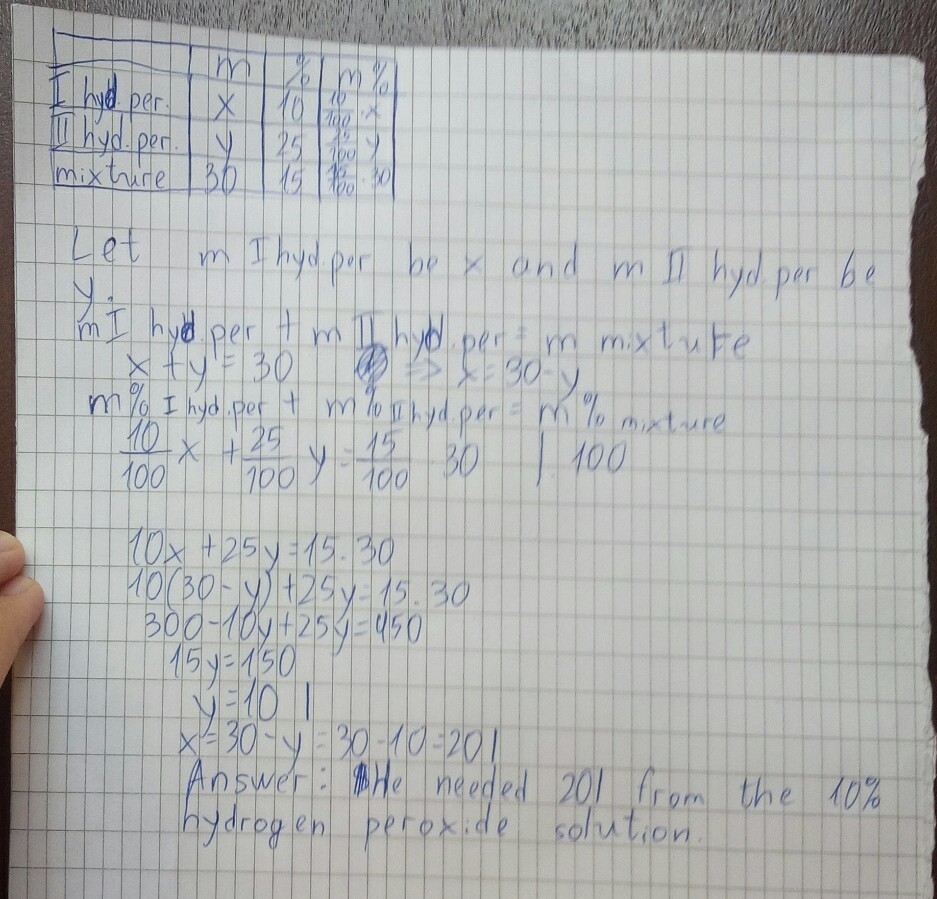 m % m%
I hyd.per. x 10 10/100 · x
II hyd.per. y 25 25/100 y
mixture 30 15 15/100 · 30
Let m I hyd.per be x and m II hyd per be
y.
m I hyd.per + m II hyd.per = m mixture
x + y = 30 => x = 30 - y
m% I hyd.per + m% II hyd.per = m% mixture
10/100 x + 25/100 y = 15/100 30 | . 100
10x + 25y = 15 . 30
10(30 - y) + 25y = 15 . 30
300 - 10y + 25y = 450
15y = 150
y = 10 l
x = 30 - y = 30 - 10 = 20 l
Answer: He needed 20l from the 10%
hydrogen peroxide solution.